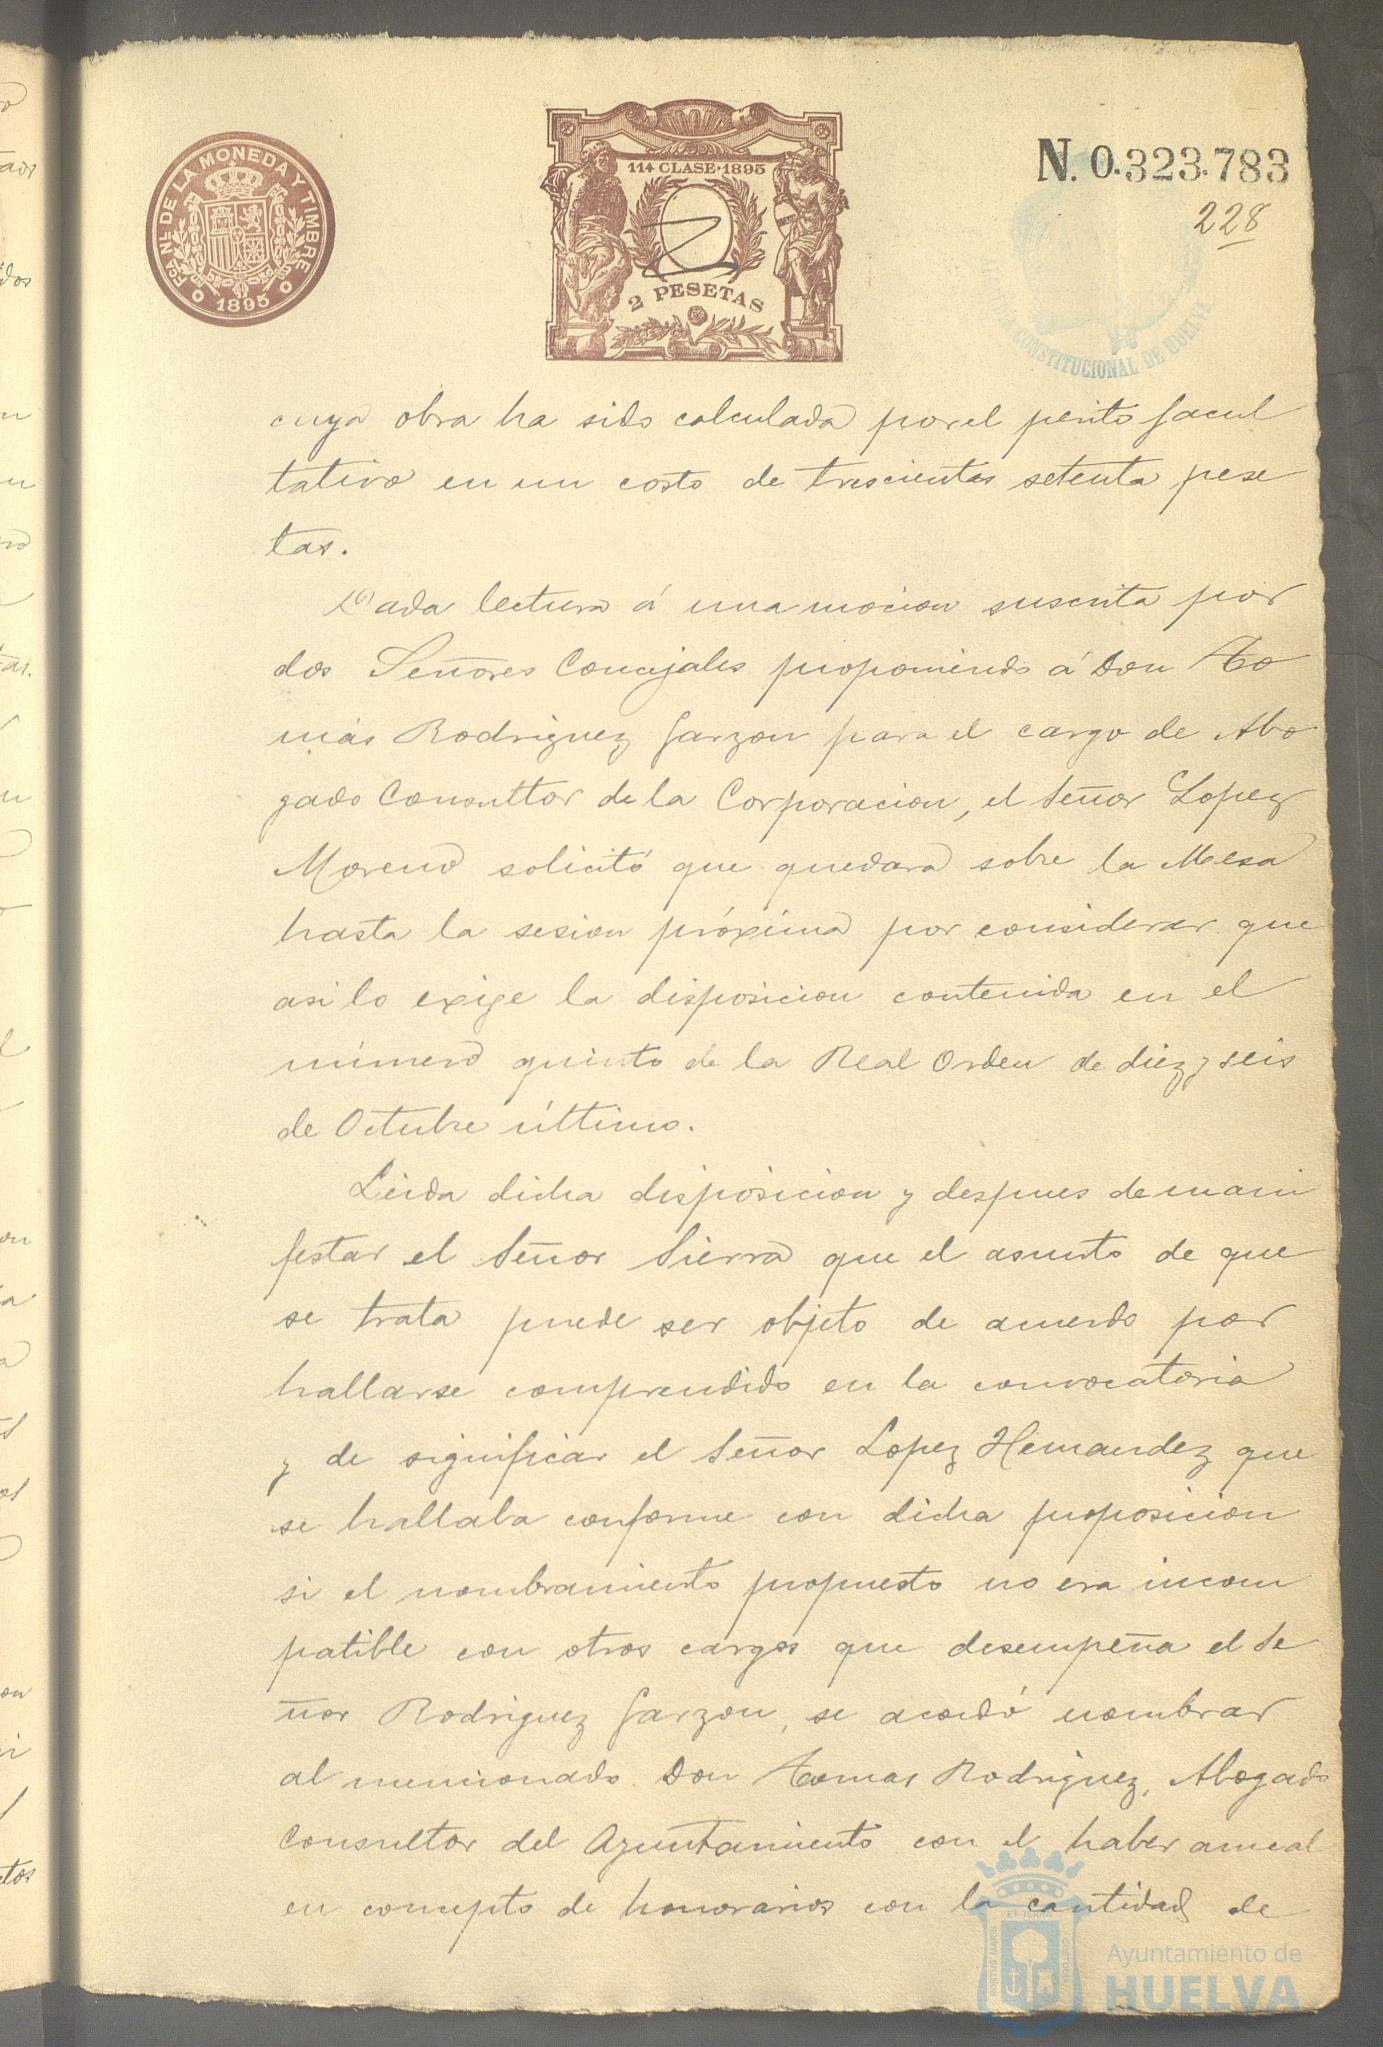 FCA. NAL. DE LA MONEDA Y TIMBRE
1895
11ª CLASE·1895
2 PESETAS
N. 0.323.783
228
CONSTITUCIONAL DE HUELVA
cuya obra ha sido calculada por el perito facul
tativo en un costo de trescientas setenta pese
tas.
Dada lectura á una mocion suscrita por
dos Señores Concejales proponiendo á Don To
más Rodriguez Garzon para el cargo de Abo
gado Consultor de la Corporacion, el Señor Lopez
Moreno solicitó que quedara sobre la Mesa
hasta la sesion próxima por considerar que
asi lo exige la disposicion contenida en el
número quinto de la Real Orden de diez y seis
de Octubre último.
Leida dicha disposicion y despues de mani
festar el Señor Sierra que el asunto de que
se trata puede ser objeto de acuerdo por
hallarse comprendido en la convocatoria
y de significar el Señor Lopez Hernandez que
se hallaba conforme con dicha proposicion
si el nombramiento propuesto no era incom
patible con otros cargos que desempeña el Se
ñor Rodriguez Garzon, se acordó nombrar
al mencionado Don Tomas Rodriguez, Abogado
Consultor del Ayuntamiento con el haber anual
en concepto de honorarios con la cantidad de
Ayuntamiento de
HUELVA